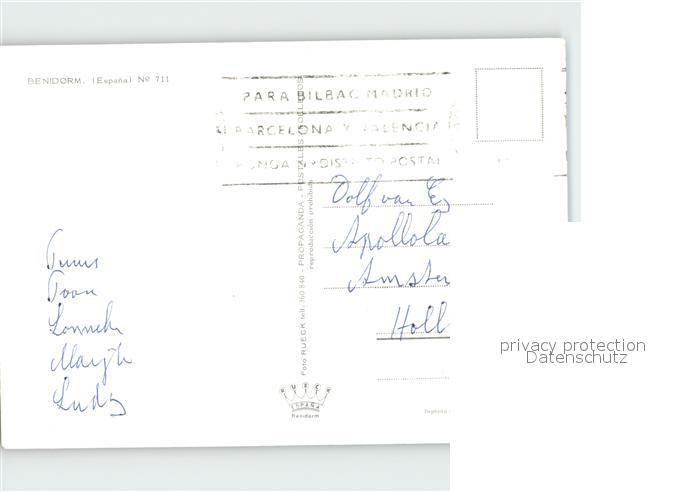 BENIDORM. (España) Nº 711
PARA BILBAO MADRID
BARCELONA Y VALENCIA
PONGA DISTRITO POSTAL
Foto RUECK telf. 360 840 - PROPAGANDA - POSTALES
reproducción prohibida
Dolf van E
Apollola
Amster
Holl
Truus
Toon
Lonneke
Ludy
RUECK
ESPAÑA
Benidorm
Depósito
privacy protection
Datenschutz